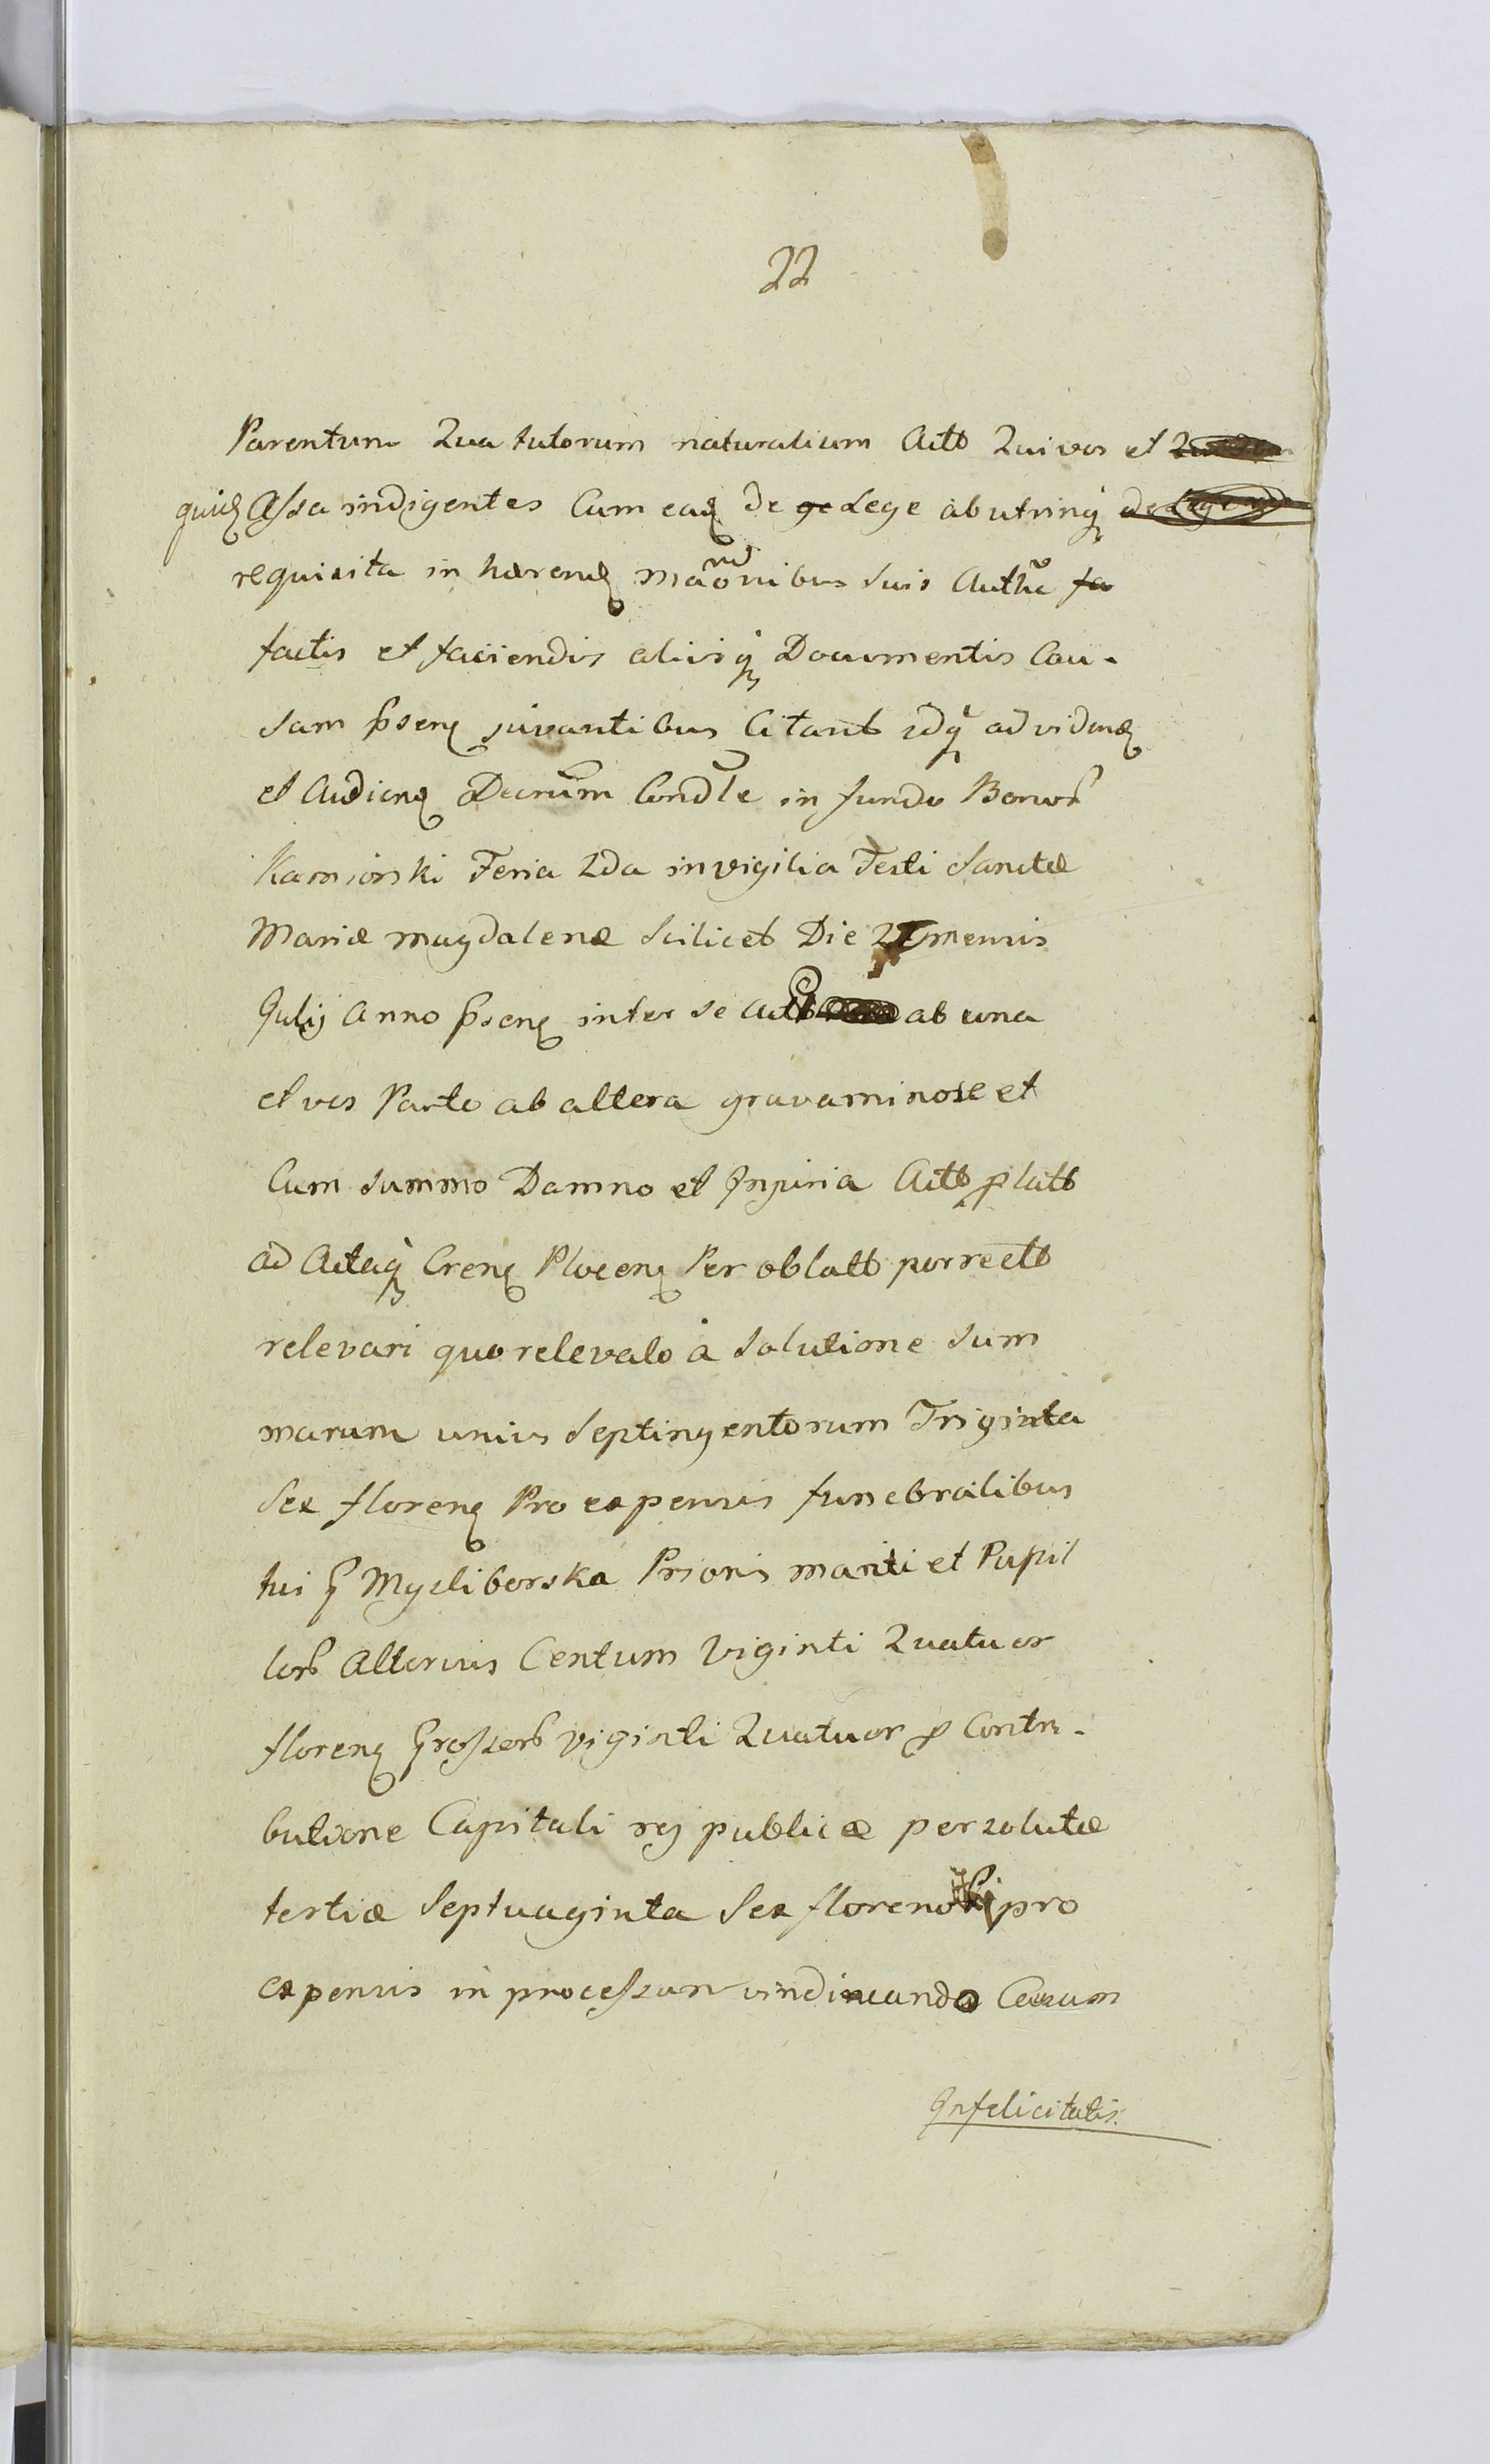 22
Parentum Qua tutorum naturalium Actt Qui vos et
quicq Assa indigentes Cum eaq de ge Lege ab utrinq
requisita in hærenq maõnibus suis Auth fa
factis et faciendis aliisq Documentis Cau-
sam psenq juvantibus Citant idq ad videnq
et Audienq Decrum Condle in fundo Bonorb
Kamionski Feria 2da in vigilia Festi Sanctæ
Mariæ magdalenæ Scilicet Die 21 mensis
Julij Anno psenq inter se Actt ab una
et vos Parte ab altera gravaminose et
Cum summo Damno et Injuria Actt platt
ad Actaq Crenq Plocenq Per oblatt porrectt
relevari quo relevato à Solutione Sum
marum unius Septingentorum Triginta
Sex florenq Pro expensis funebralibus
tui G Mysliborska Prioris mariti et Pupil
lorb Alterius Centum Viginti Quatuor
florenq Grossorb viginti Quatuor p Contri-
butione Capitali rej publicæ persolutæ
tertiæ Septuaginta Sex floreno pro
expensis in processum vindicando Casum
Infelicitatis.